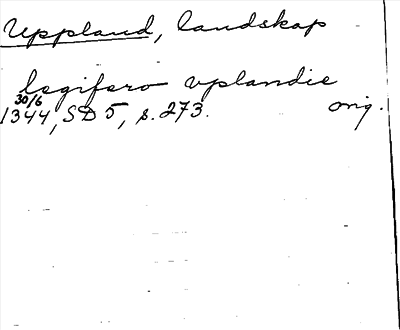 Uppland, landskap
legifero vplandie
30/6
1344, SD 5, s. 273. orig.